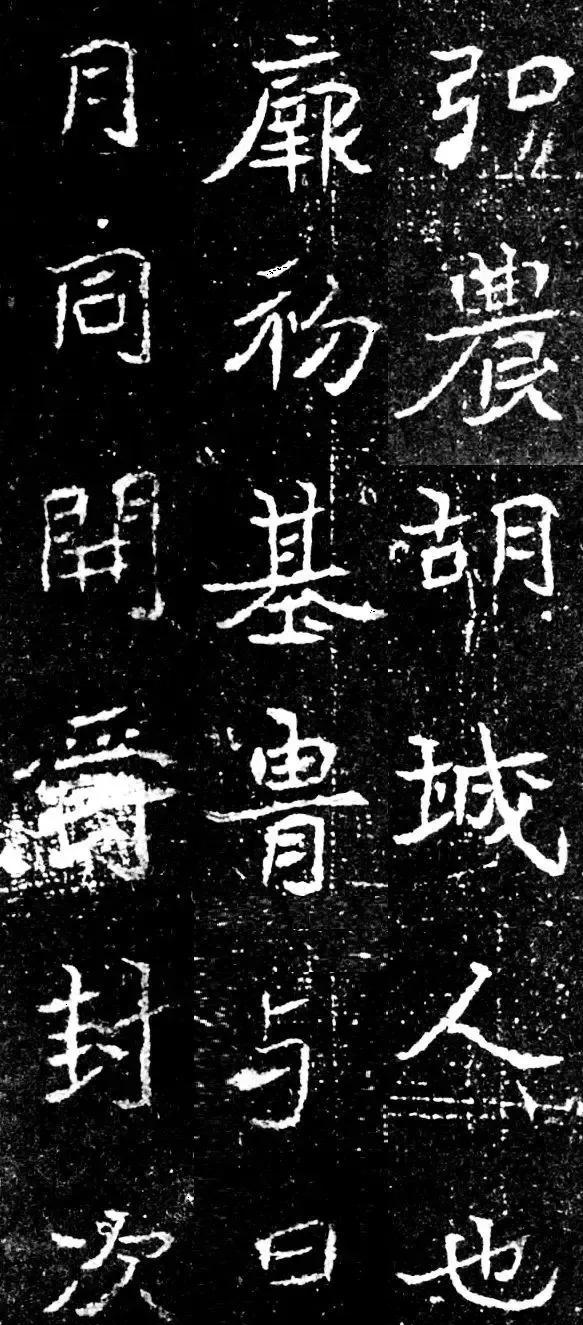 弘農胡城人也
厥初基胄与日
月同開封次